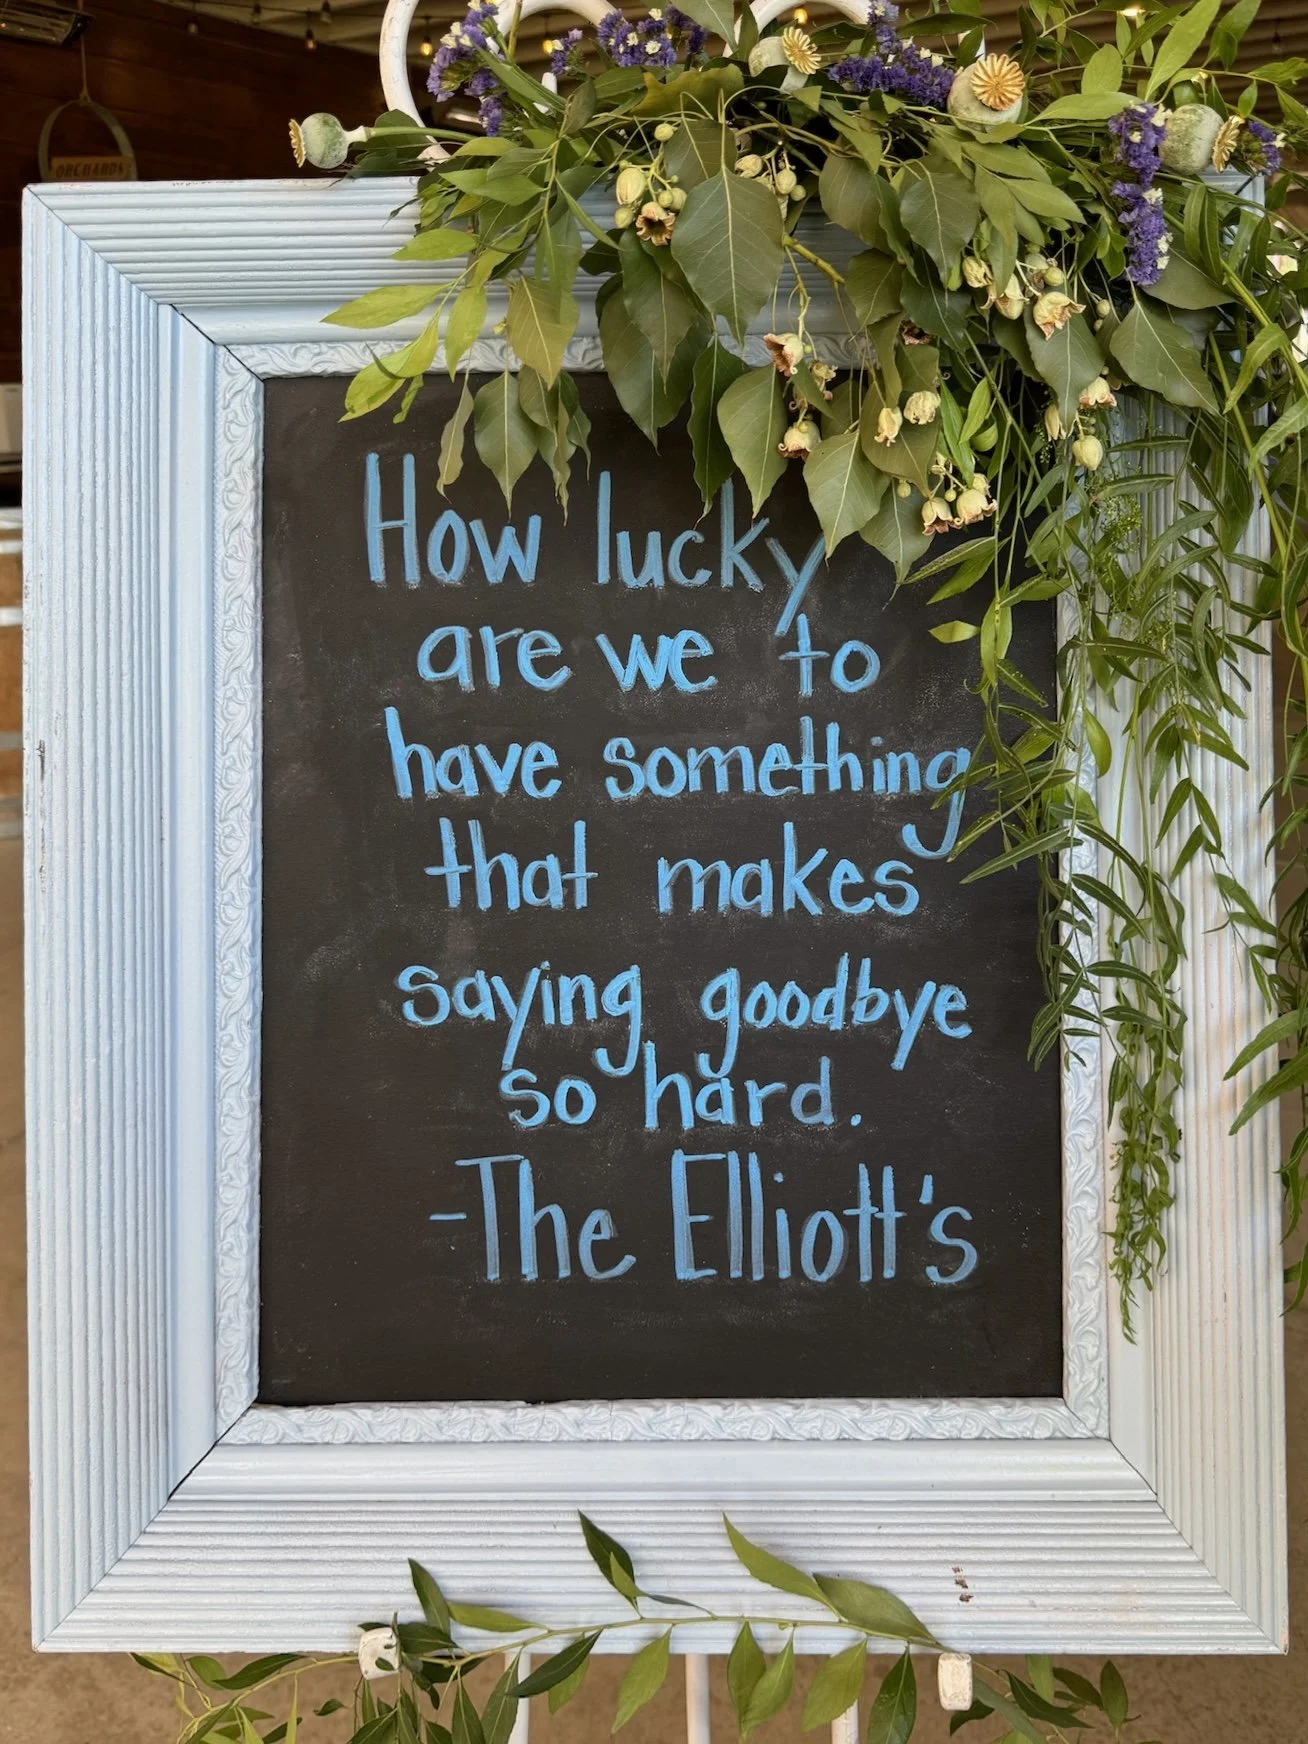 ORCHARDS
How lucky
are we to
have something
that makes
saying goodbye
so hard.
-The Elliott's